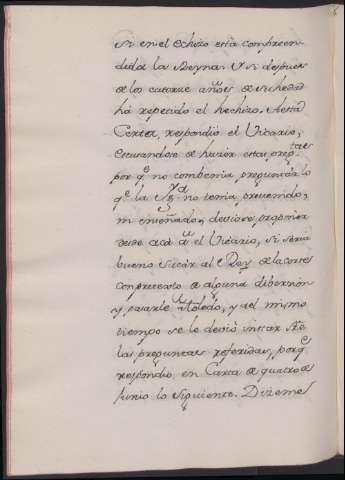 si en el echizo està comprecen-
dida la Reyna. Y si despues
de los catorze años de su hedad
hà repetido el hechizo. A esta
Carta, respondio el Vicario,
escusandose de hazer estas preg.tas
por q.e no combenia preguntàr lo
q.e la no tenia prevenido,
ni enseñado; deviose proponer
desde acà a el Vicario, si seria
bueno sacàr al Rey de la corte
con pretexto de alguna diberción
y pasarle à Toledo, y al mismo
tiempo se le deviò instar sre
las preguntas referidas, porq.e
respondio en Carta de quatro de
Junio lo Siguiente. Dizeme